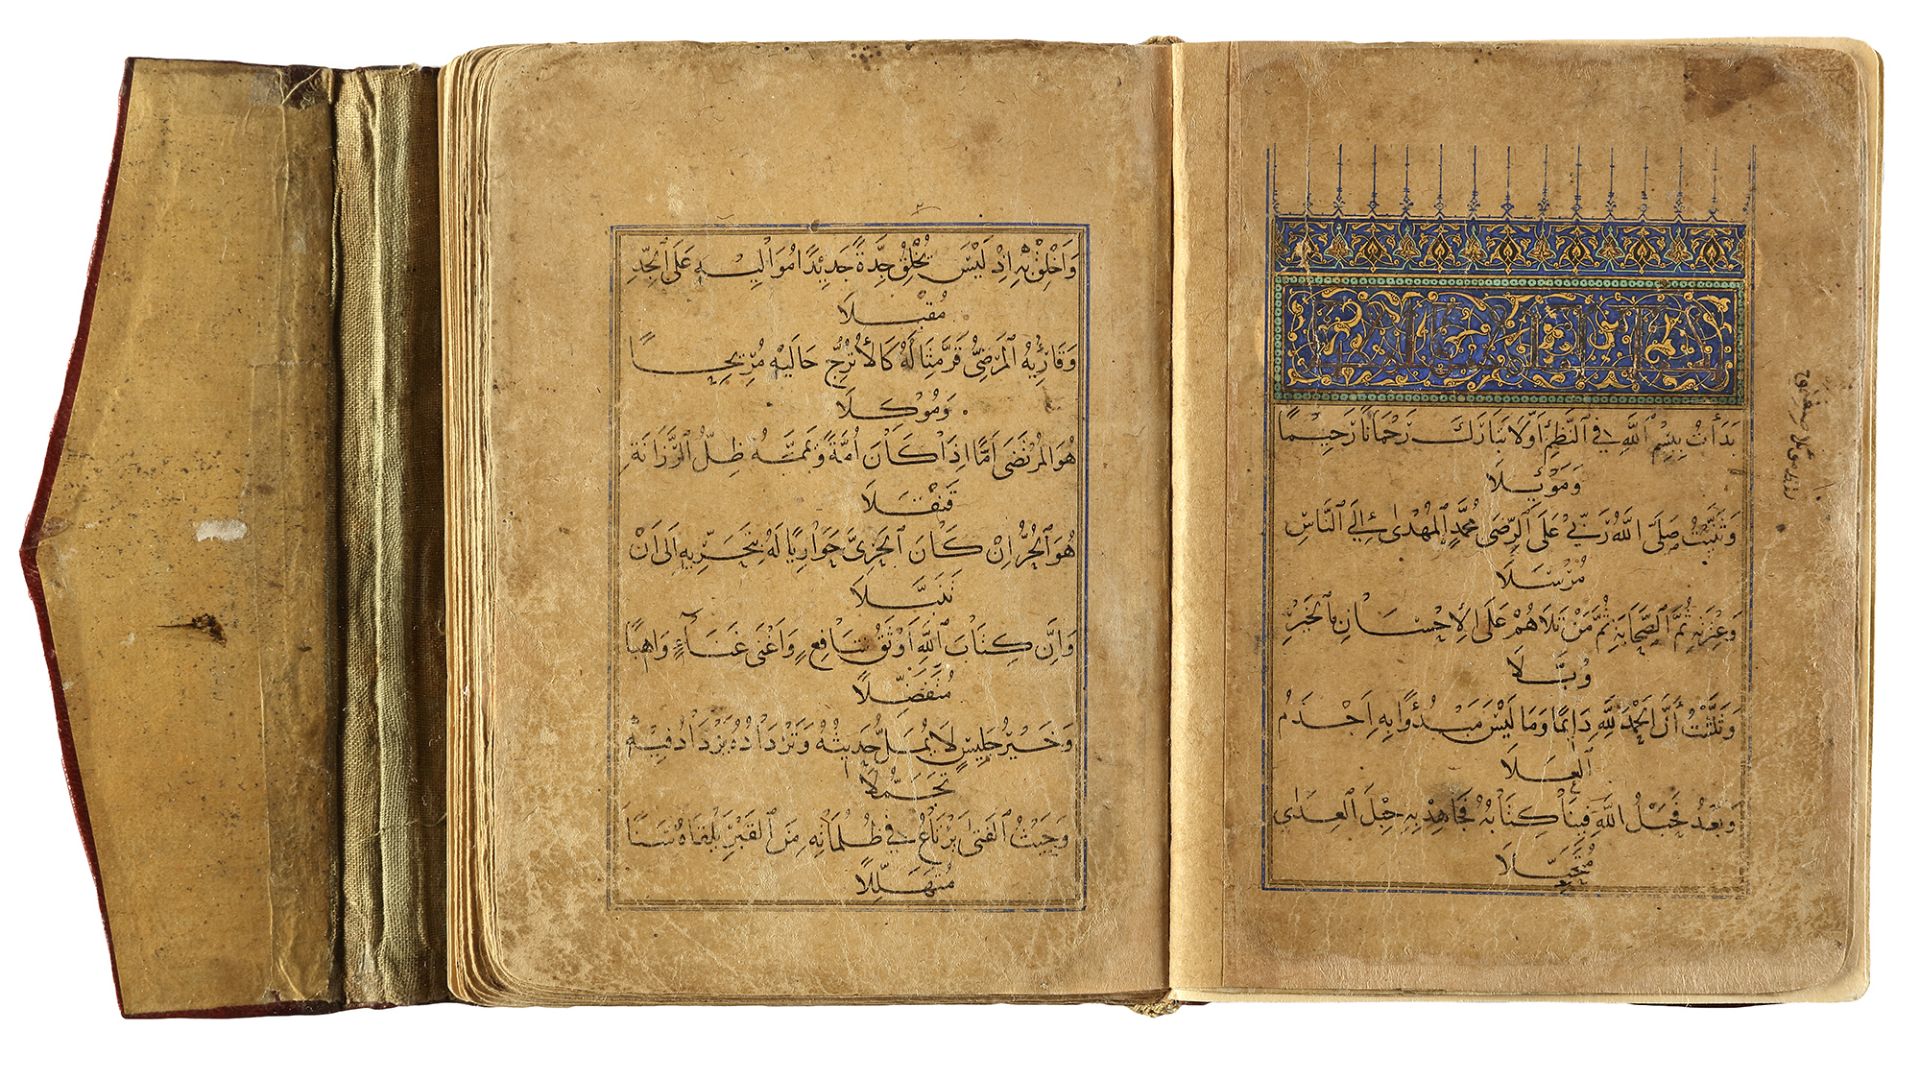 بَدَأْتُ بِبِسْمِ اللَّهِ فِي النَّظْمِ أَوَّلَا تَبَارَكَ رَحْمَانًا رَحِيمًا
وَمَوْئِلَا
وَثَنَّيْتُ صَلَّى اللَّهُ رَبِّي عَلَى الرِّضَى مُحَمَّدٍ الْمُهْدَى إِلَى النَّاسِ
مُرْسَلَا
وَعِتْرَتِهِ ثُمَّ الصَّحَابَةِ ثُمَّ مَنْ تَلَاهُمْ عَلَى الْإِحْسَانِ بِالْخَيْرِ
وُبَّلَا
وَثَلَّثْتُ أَنَّ الْحَمْدَ لِلَّهِ دَائِمًا وَمَا لَيْسَ مَبْدُوًا بِهِ أَجْذَمُ
الْعَلَا
وَبَعْدُ فَحَبْلُ اللَّهِ فِينَا كِتَابُهُ فَجَاهِدْ بِهِ حِبْلَ الْعِدَى
مُتَحَبِّلَا
وَأَخْلِقْ بِهِ إِذْ لَيْسَ يَخْلُقُ جِدَّةً جَدِيدًا مُوَالِيهِ عَلَى الْجِدِّ
مُقْبِلَا
وَقَارِئُهُ الْمَرْضِيُّ قَرَّ مِثَالُهُ كَالْأُتْرُجِّ حَالَيْهِ مُرِيحًا
وَمُوكِلَا
هُوَ الْمُرْتَضَى أَمًّا إِذَا كَانَ أُمَّةً وَيَمَّمَهُ ظِلُّ الرَّزَانَةِ
قَنْقَلَا
هُوَ الْحُرُّ إِنْ كَانَ الْحَرِيَّ حَوَارِيًا لَهُ بِتَحَرِّيهِ إِلَى أَنْ
تَنَبَّلَا
وَإِنَّ كِتَابَ اللَّهِ أَوْثَقُ شَافِعٍ وَأَغْنَى غَنَاءٍ وَاهِبًا
مُتَفَضِّلَا
وَخَيْرُ جَلِيسٍ لَا يُمَلُّ حَدِيثُهُ وَتَرْدَادُهُ يَزْدَادُ فِيهِ
تَجَمُّلَا
وَحَيْثُ الْفَتَى يَرْتَاعُ فِي ظُلُمَاتِهِ مِنَ الْقَبْرِ يَلْقَاهُ سَنًا
مُتَهَلِّلَا